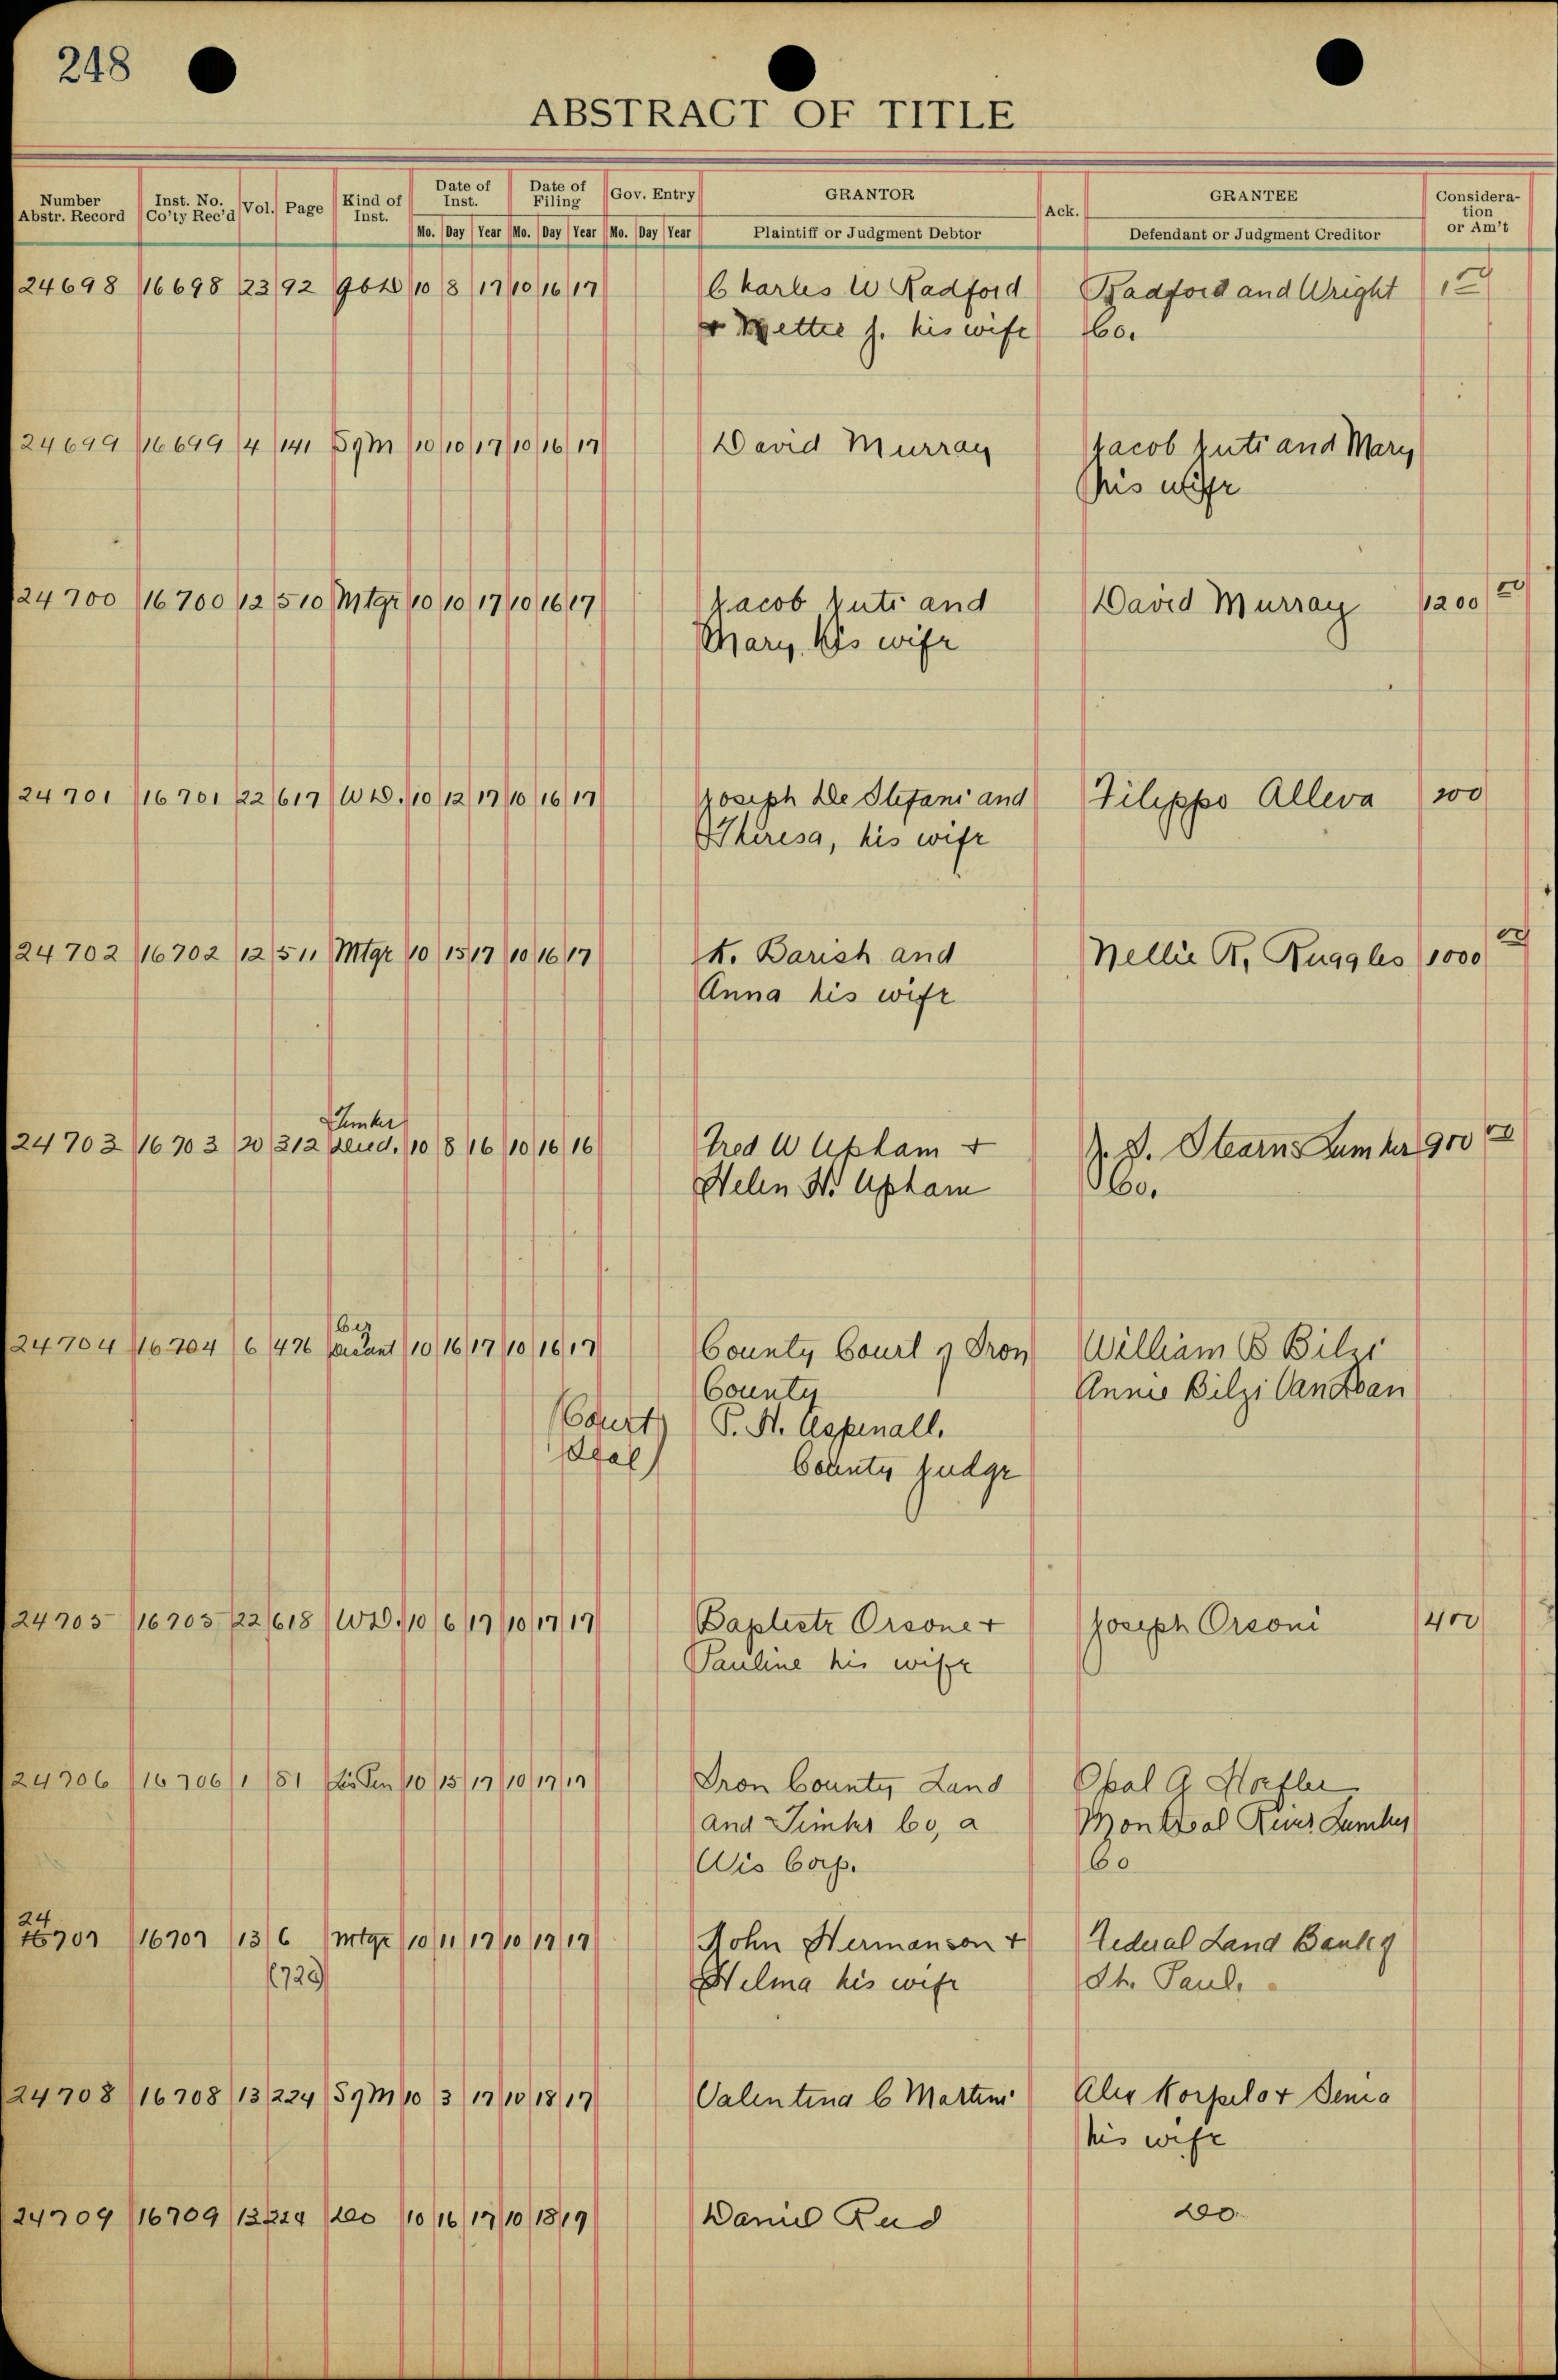 248
ABSTRACT OF TITLE
Number Abstr. Record Inst. No. Co'ty Rec'd Vol. Page Kind of Inst. Date of Inst. Date of Filing Gov. Entry GRANTOR Ack. GRANTEE Consideration or Am't
Mo. Day Year Mo. Day Year Mo. Day Year Plaintiff or Judgment Debtor Defendant or Judgment Creditor
24698 16698 23 92 10 8 17 10 16 17 Charles W Radford Radford and Wright 1 00
& Mettie J. his wife Co.
24699 16699 4 141 S9M 10 10 17 10 16 17 David Murray Jacob Juti and Mary
his wife
24700 16700 12 510 Mtge 10 10 17 10 16 17 Jacob Juti and David Murray 1200 00
Mary, his wife
24701 16701 22 617 WD. 10 12 17 10 16 17 Joseph De Stefani and Filippo Alleva 100
Theresa, his wife
24702 16702 12 511 Mtge 10 15 17 10 16 17 K. Barish and Nellie R. Ruggles 1000 00
Anna his wife
Timber
24703 16703 20 312 Deed. 10 8 16 10 16 16 Fred W Upham + J. S. Stearns Lumber 900 00
Helen H. Upham Co.
Cer
24704 16704 6 476 10 16 17 10 16 17 County Court of Iron William B Bilzi
County Annie Bilzi
(Court P. H. Aspinall.
Seal) County Judge
24705 16705 22 618 WD. 10 6 17 10 17 17 Baptiste Orsone + Joseph Orsoni 400
Pauline his wife
24706 16706 1 81 Lis Pen 10 15 17 10 17 17 Iron County Land Opal A
and Timber Co, a Montreal River Lumber
Wis Corp. Co
24
16707 16707 13 6 Mtge 10 11 17 10 17 17 John Hermanson + Federal Land Bank of
(729) Helma his wife St. Paul.
24708 16708 13 224 S9M 10 3 17 10 18 17 Valentina C Martini Alex Korpelo + Senia
his wife
24709 16709 13 224 Do 10 16 17 10 18 17 Daniel Rud Do.